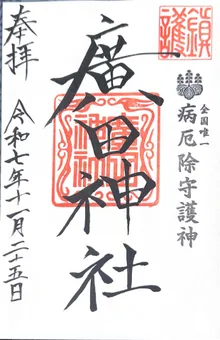 鎮護
全国唯一
病厄除守護神
廣田神社
奉拝
令和七年十一月二十五日